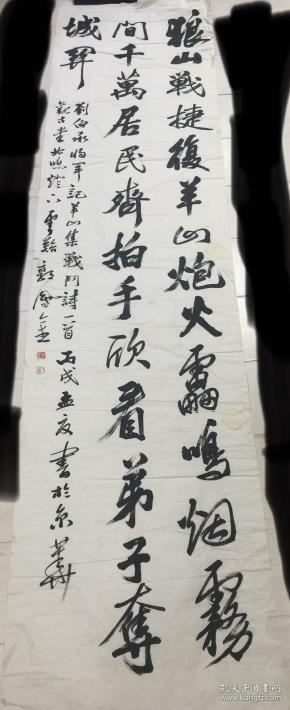 狼山戰捷復羊山炮火靁鳴烟霧
間千萬居民齊拍手欣看弟子奪
城關
劉伯承將軍記羊山集戰鬥詩一首 丙戌孟夏書於京華
孔夫子旧书网